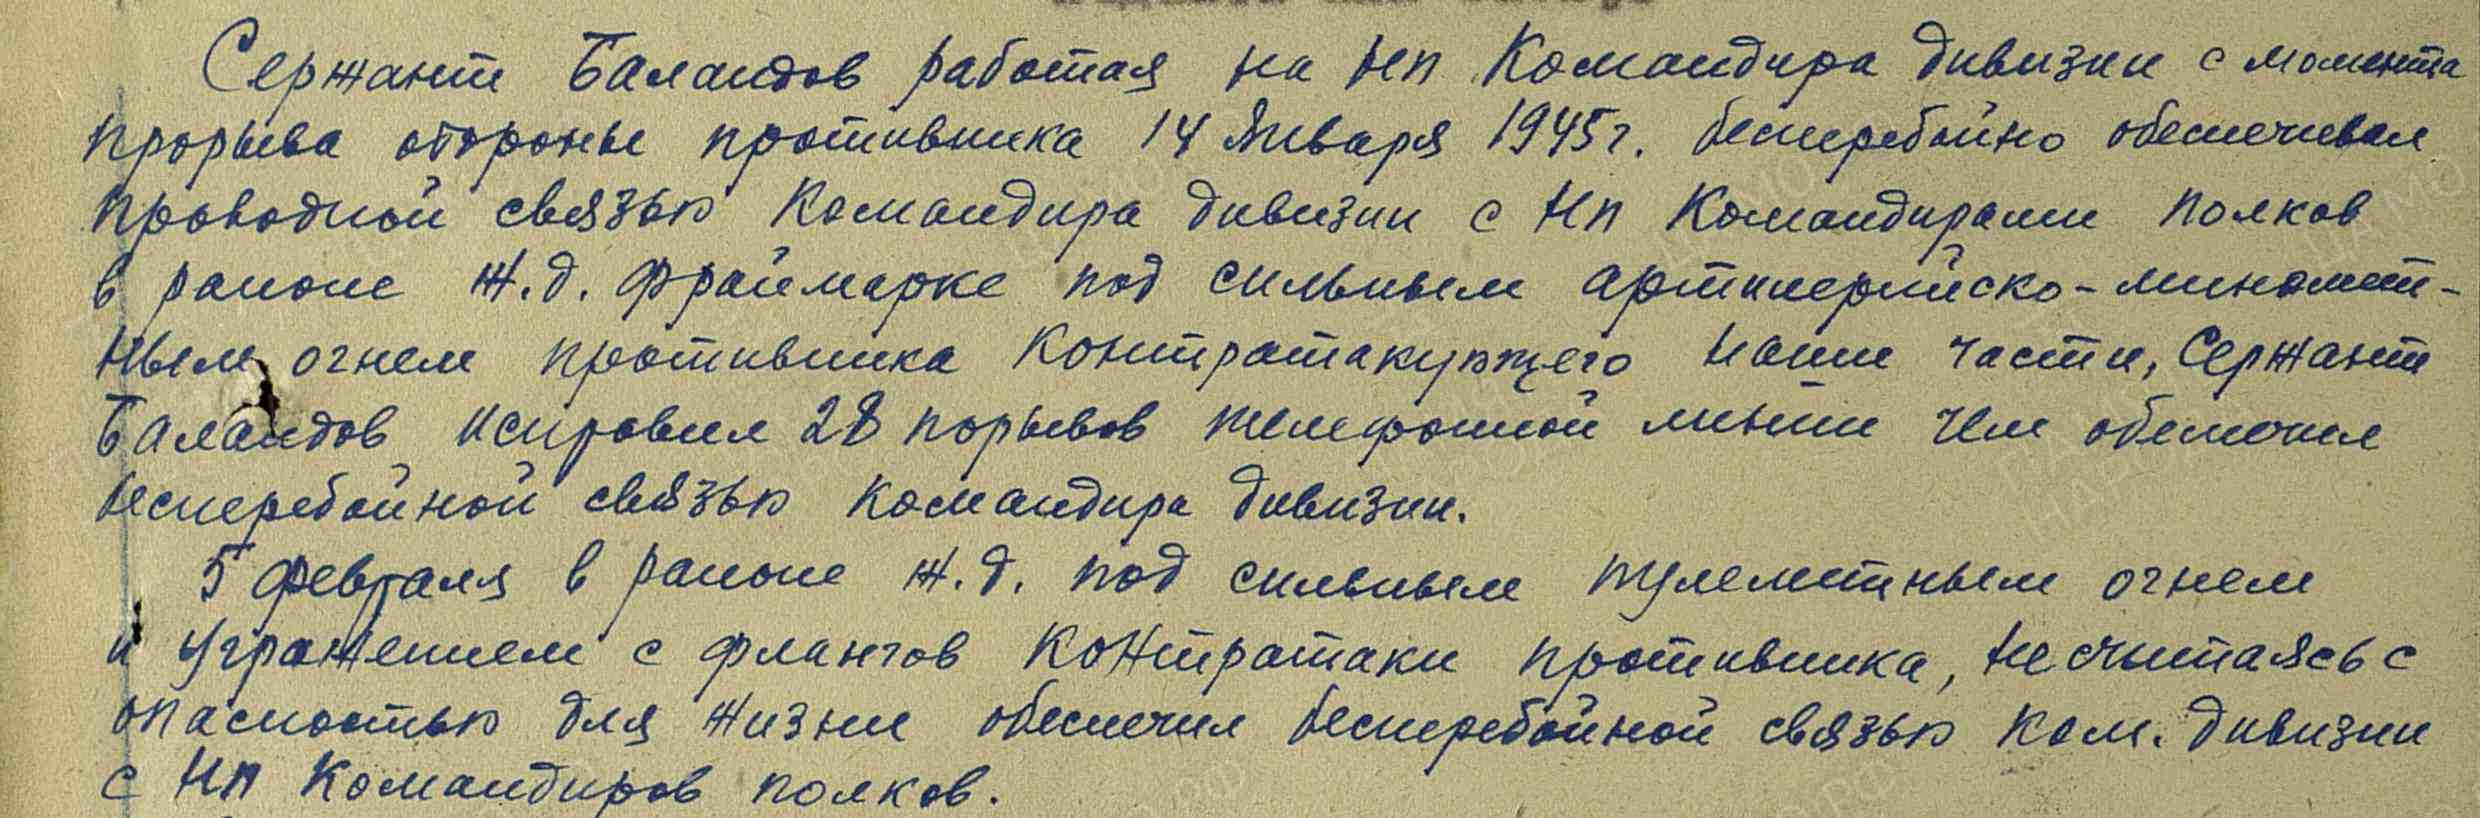 Сержант Баландов работая на НП Командира дивизии с момента
прорыва обороны противника 14 Января 1945г. бесперебойно обеспечивал
проводной связью Командира дивизии с НП Командирами полков
в районе Ж.д. Фраймарке под сильным артилерийско-миномет-
ным огнем противника контратакующего наши части, Сержант
Баландов исправил 28 порывов телефонной линии чем обеспечил
бесперебойной связью командира дивизии.
5 февраля в районе Ж.д. под сильным пулеметным огнем
и угражением с флангов контратаки противника, не считаясь с
опасностью для жизни обеспечил бесперебойной связью ком. дивизии
с НП Командиров полков.